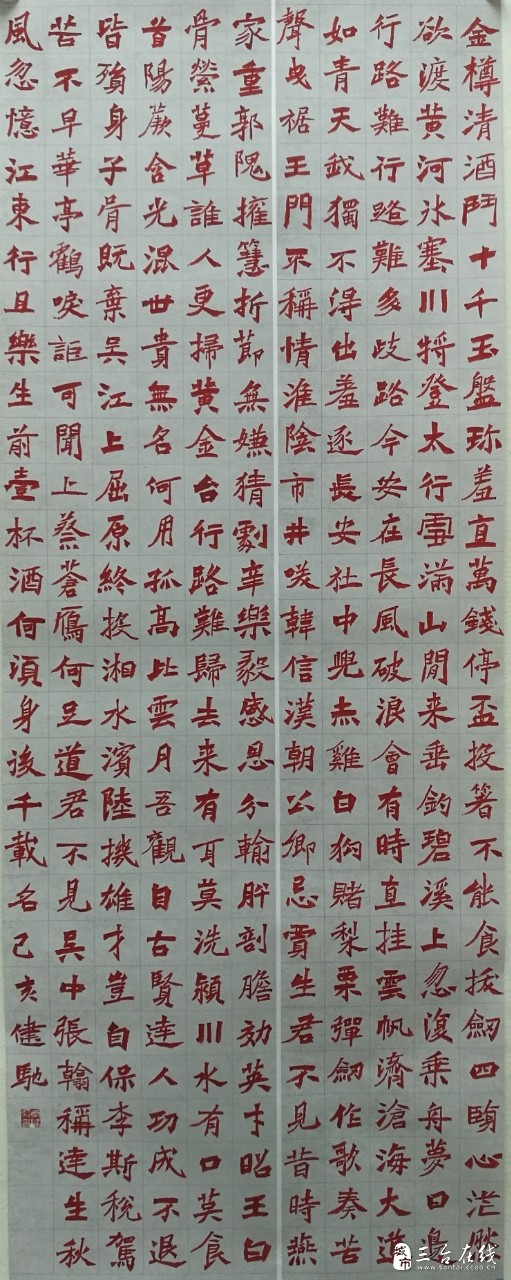 金樽清酒鬥十千玉盤珎羞直萬錢停盃投箸不能食拔劒四顧心茫然
欲渡黄河氷塞川將登太行雪滿山閒来垂釣碧溪上忽復乘舟夢日邊
行路難行路難多歧路今安在長風破浪會有時直挂雲帆濟滄海大道
如青天我獨不得出羞逐長安社中兒赤雞白狗賭梨栗彈劒作歌奏苦
聲曳裾王門不稱情淮陰市井笑韓信漢朝公卿忌賈生君不見昔時燕
家重郭隗擁篲折節無嫌猜劇辛樂毅感恩分輸肝剖膽効英才昭王白
骨縈蔓草誰人更掃黄金台行路難歸去来有耳莫洗潁川水有口莫食
首陽蕨含光混世貴無名何用孤高比雲月吾觀自古賢達人功成不退
皆殞身子胥既棄吳江上屈原終投湘水濱陸機雄才豈自保李斯稅駕
苦不早華亭鶴唳詎可聞上蔡蒼鷹何足道君不見吳中張翰稱達生秋
風忽憶江東行且樂生前壹杯酒何須身後千載名己亥健馳
三台在线
www.santai.ccoo.cn